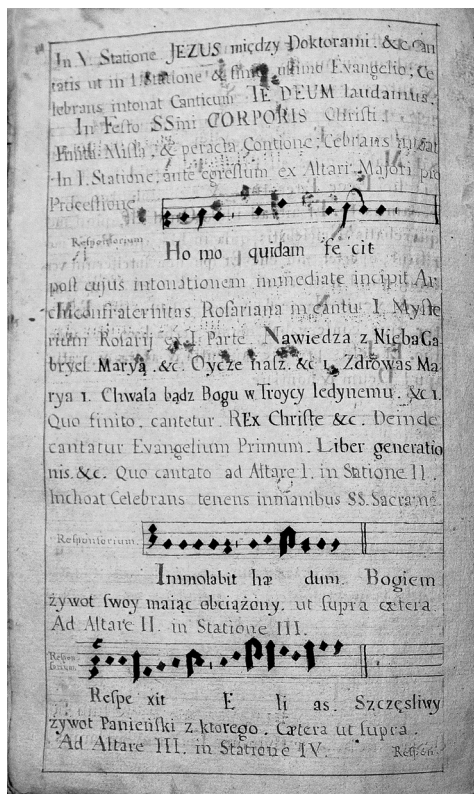 In V. Statione JEZUS między Doktorami. &c. Can
tatis ut in I. Statione & finito ultimo Evangelio, Ce
lebrans intonat Canticum TE DEUM laudamus.
In Festo SSini CORPORIS Christi
Finita Missa, & peracta Contione, Cebrans intonat
In I. Statione, ante egressum ex Altari Majori pro
Processione
Responsorium
Ho mo quidam fe cit
post cujus intonationem immediate incipit Ar
chiconfraternitas Rosariana in cantu I. Myste
rium Rosarij ex I. Parte. Nawiedza z Nieba Ga
bryel Maryą. &c. Oycze nasz. &c 1. Zdrowas Ma
rya 1. Chwała bądz Bogu w Troycy Iedynemu. &c 1.
Quo finito. cantetur. REx Christe &c. Deinde
cantatur Evangelium Primum. Liber generatio
nis. &c. Quo cantato ad Altare I. in Statione II.
Inchoat Celebrans tenens in manibus SS. Sacrame.
Responsorium.
Immolabit hæ dum. Bogiem
żywot swoy maiąc obciążony. ut supra cætera
Ad Altare II. in Statione III.
Respon
sorium.
Respe xit E li as. Szczęsliwy
żywot Panieński z ktorego. Cætera ut supra.
Ad Altare III. in Statione IV.